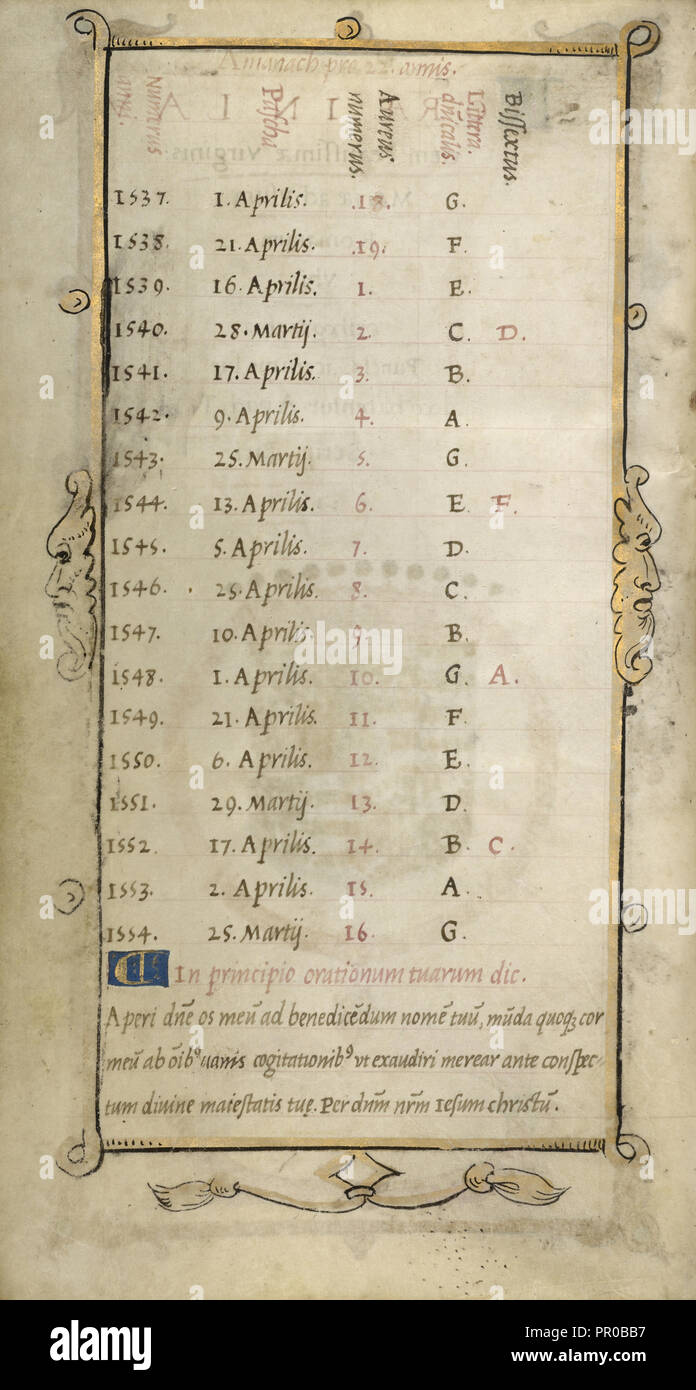 Amanach pro 22. annis.
Numerus anni.
Pascha
Aureus numerus.
Littera. dñicalis.
Bissextus.
1537. 1. Aprilis. .18. G.
1538. 21. Aprilis. .19. F.
1539. 16. Aprilis. 1. E.
1540. 28. Martij. 2. C. D.
1541. 17. Aprilis. 3. B.
1542. 9. Aprilis. 4. A.
1543. 25. Martij. 5. G.
1544. 13. Aprilis. 6. E. F.
1545. 5. Aprilis. 7. D.
1546. 25. Aprilis. 8. C.
1547. 10. Aprilis. 9. B.
1548. 1. Aprilis. 10. G. A.
1549. 21. Aprilis. 11. F.
1550. 6. Aprilis. 12. E.
1551. 29. Martij. 13. D.
1552. 17. Aprilis. 14. B. C.
1553. 2. Aprilis. 15. A.
1554. 25. Martij. 16. G.
In principio orationum tuarum dic.
Aperi dñe os meũ ad benedicẽdum nomẽ tuũ, mũda quoqꝫ cor
meũ ab õibꝰ uanis cogitationibꝰ vt exaudiri merear ante conspec-
tum diuine maiestatis tuę. Per dnm̃ nrm̃ Iesum christũ.
alamy
Image ID: PR0BB7
www.alamy.com